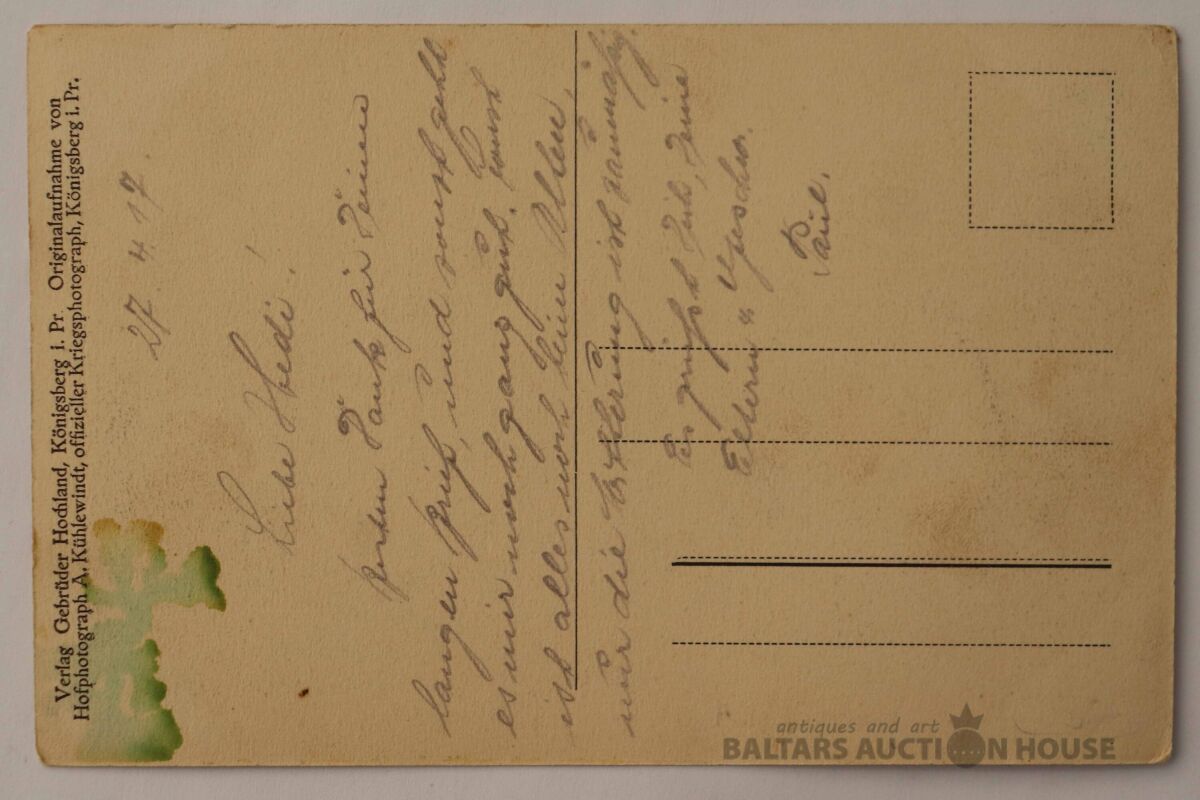 Verlag Gebrüder Hochland, Königsberg i. Pr. Originalaufnahme von
Hofphotograph A. Kühlewindt, offizieller Kriegsphotograph, Königsberg i. Pr.
27 4 17
Liebe Hedi!
Dank für Deinen
langen Brief, und sonst geht
es mir noch ganz gut. Sonst
ist alles noch beim Alten,
nur die ist
Es grüßt Dich, Deine
Eltern u
Paul.
antiques and art
BALTARS AUCTION HOUSE